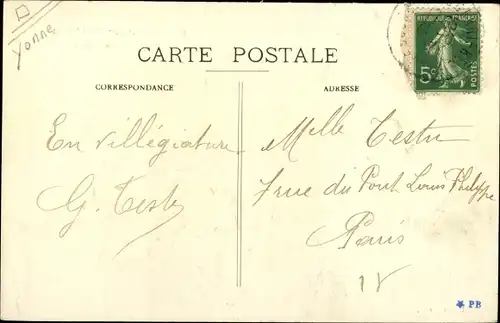 Yonne
REPUBLIQUE FRANÇAISE
5c
POSTES
CARTE POSTALE
CORRESPONDANCE
ADRESSE
En villégiature
G. Testu
Melle Testu
7 rue du Pont Louis Philippe
Paris
IV
* PB